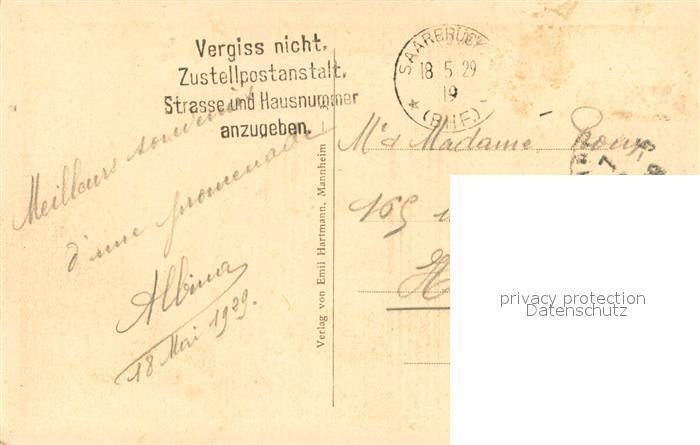 Vergiss nicht,
Zustellpostanstalt,
Strasse und Hausnummer
anzugeben.
SAARBRÜCK
18 5 29
19
* (BHF)
Meilleurs souvenirs
d'une promenade
Albina
18 Mai 1929.
Verlag von Emil Hartmann, Mannheim
Mr & Madame
165
privacy protection
Datenschutz